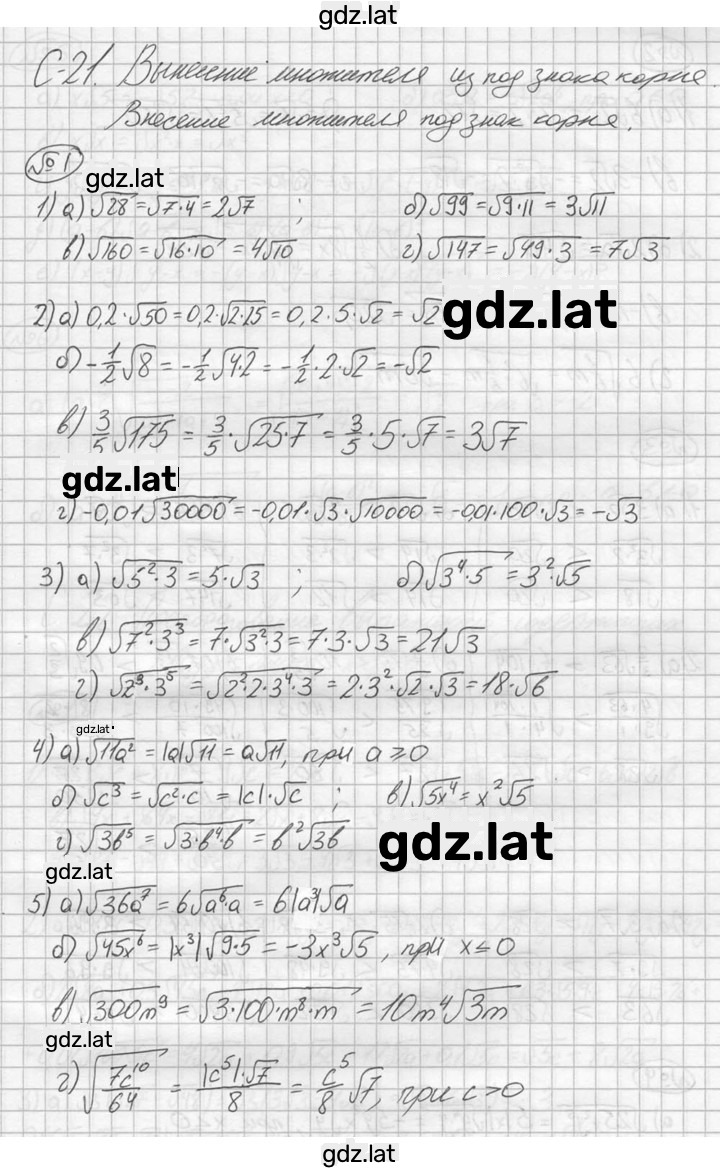 gdz.lat
С-21. Вынесение множителя из под знака корня.
Внесение множителя под знак корня.
№1
gdz.lat
1) а) √28 = √7·4 = 2√7 ; б) √99 = √9·11 = 3√11
в) √160 = √16·10 = 4√10 г) √147 = √49·3 = 7√3
2) а) 0,2·√50 = 0,2·√2·25 = 0,2·5·√2 = √2
gdz.lat
б) -1/2√8 = -1/2√4·2 = -1/2·2·√2 = -√2
в) 3/5√175 = 3/5·√25·7 = 3/5·5·√7 = 3√7
gdz.lat
г) -0,01√30000 = -0,01·√3·√10000 = -0,01·100·√3 = -√3
3) а) √5²·3 = 5·√3 ; б) √3⁴·5 = 3²√5
в) √7²·3³ = 7·√3²·3 = 7·3·√3 = 21√3
г) √2³·3⁵ = √2²·2·3⁴·3 = 2·3²·√2·√3 = 18·√6
gdz.lat
4) а) √11a² = |a|√11 = a√11, при a ≥ 0
б) √c³ = √c²·c = |c|·√c ; в) √5x⁴ = x²√5
г) √3b⁵ = √3·b⁴·b = b²√3b
gdz.lat
gdz.lat
5) а) √36a⁷ = 6√a⁶·a = 6|a³|√a
б) √45x⁶ = |x³|√9·5 = -3x³√5, при x ≤ 0
в) √300m⁹ = √3·100·m⁸·m = 10m⁴√3m
г) √7c¹⁰/64 = |c⁵|·√7/8 = c⁵/8√7, при c > 0
gdz.lat